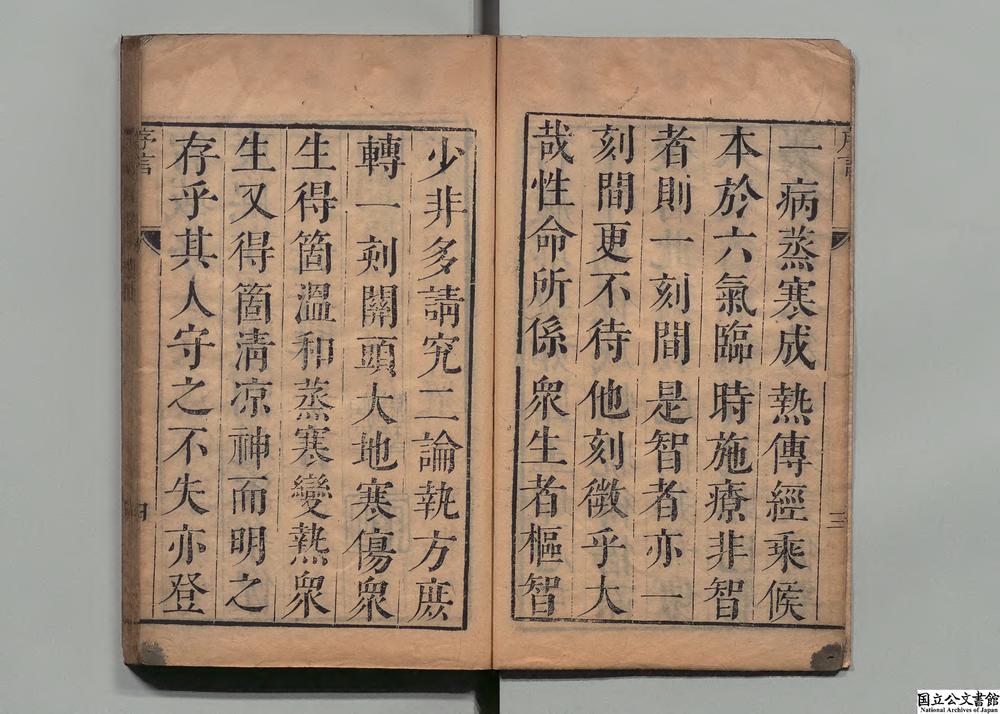 序言
一病蒸寒成熱傳經乘候
本於六氣臨時施療非智
者則一刻間是智者亦一
刻間更不待他刻微乎大
哉性命所係衆生者樞智
三
少非多請究二論執方庶
轉一刻關頭大地寒傷衆
生得箇溫和蒸寒變熱衆
生又得箇淸凉神而明之
存乎其人守之不失亦登
序言
国立公文書館
National Archives of Japan